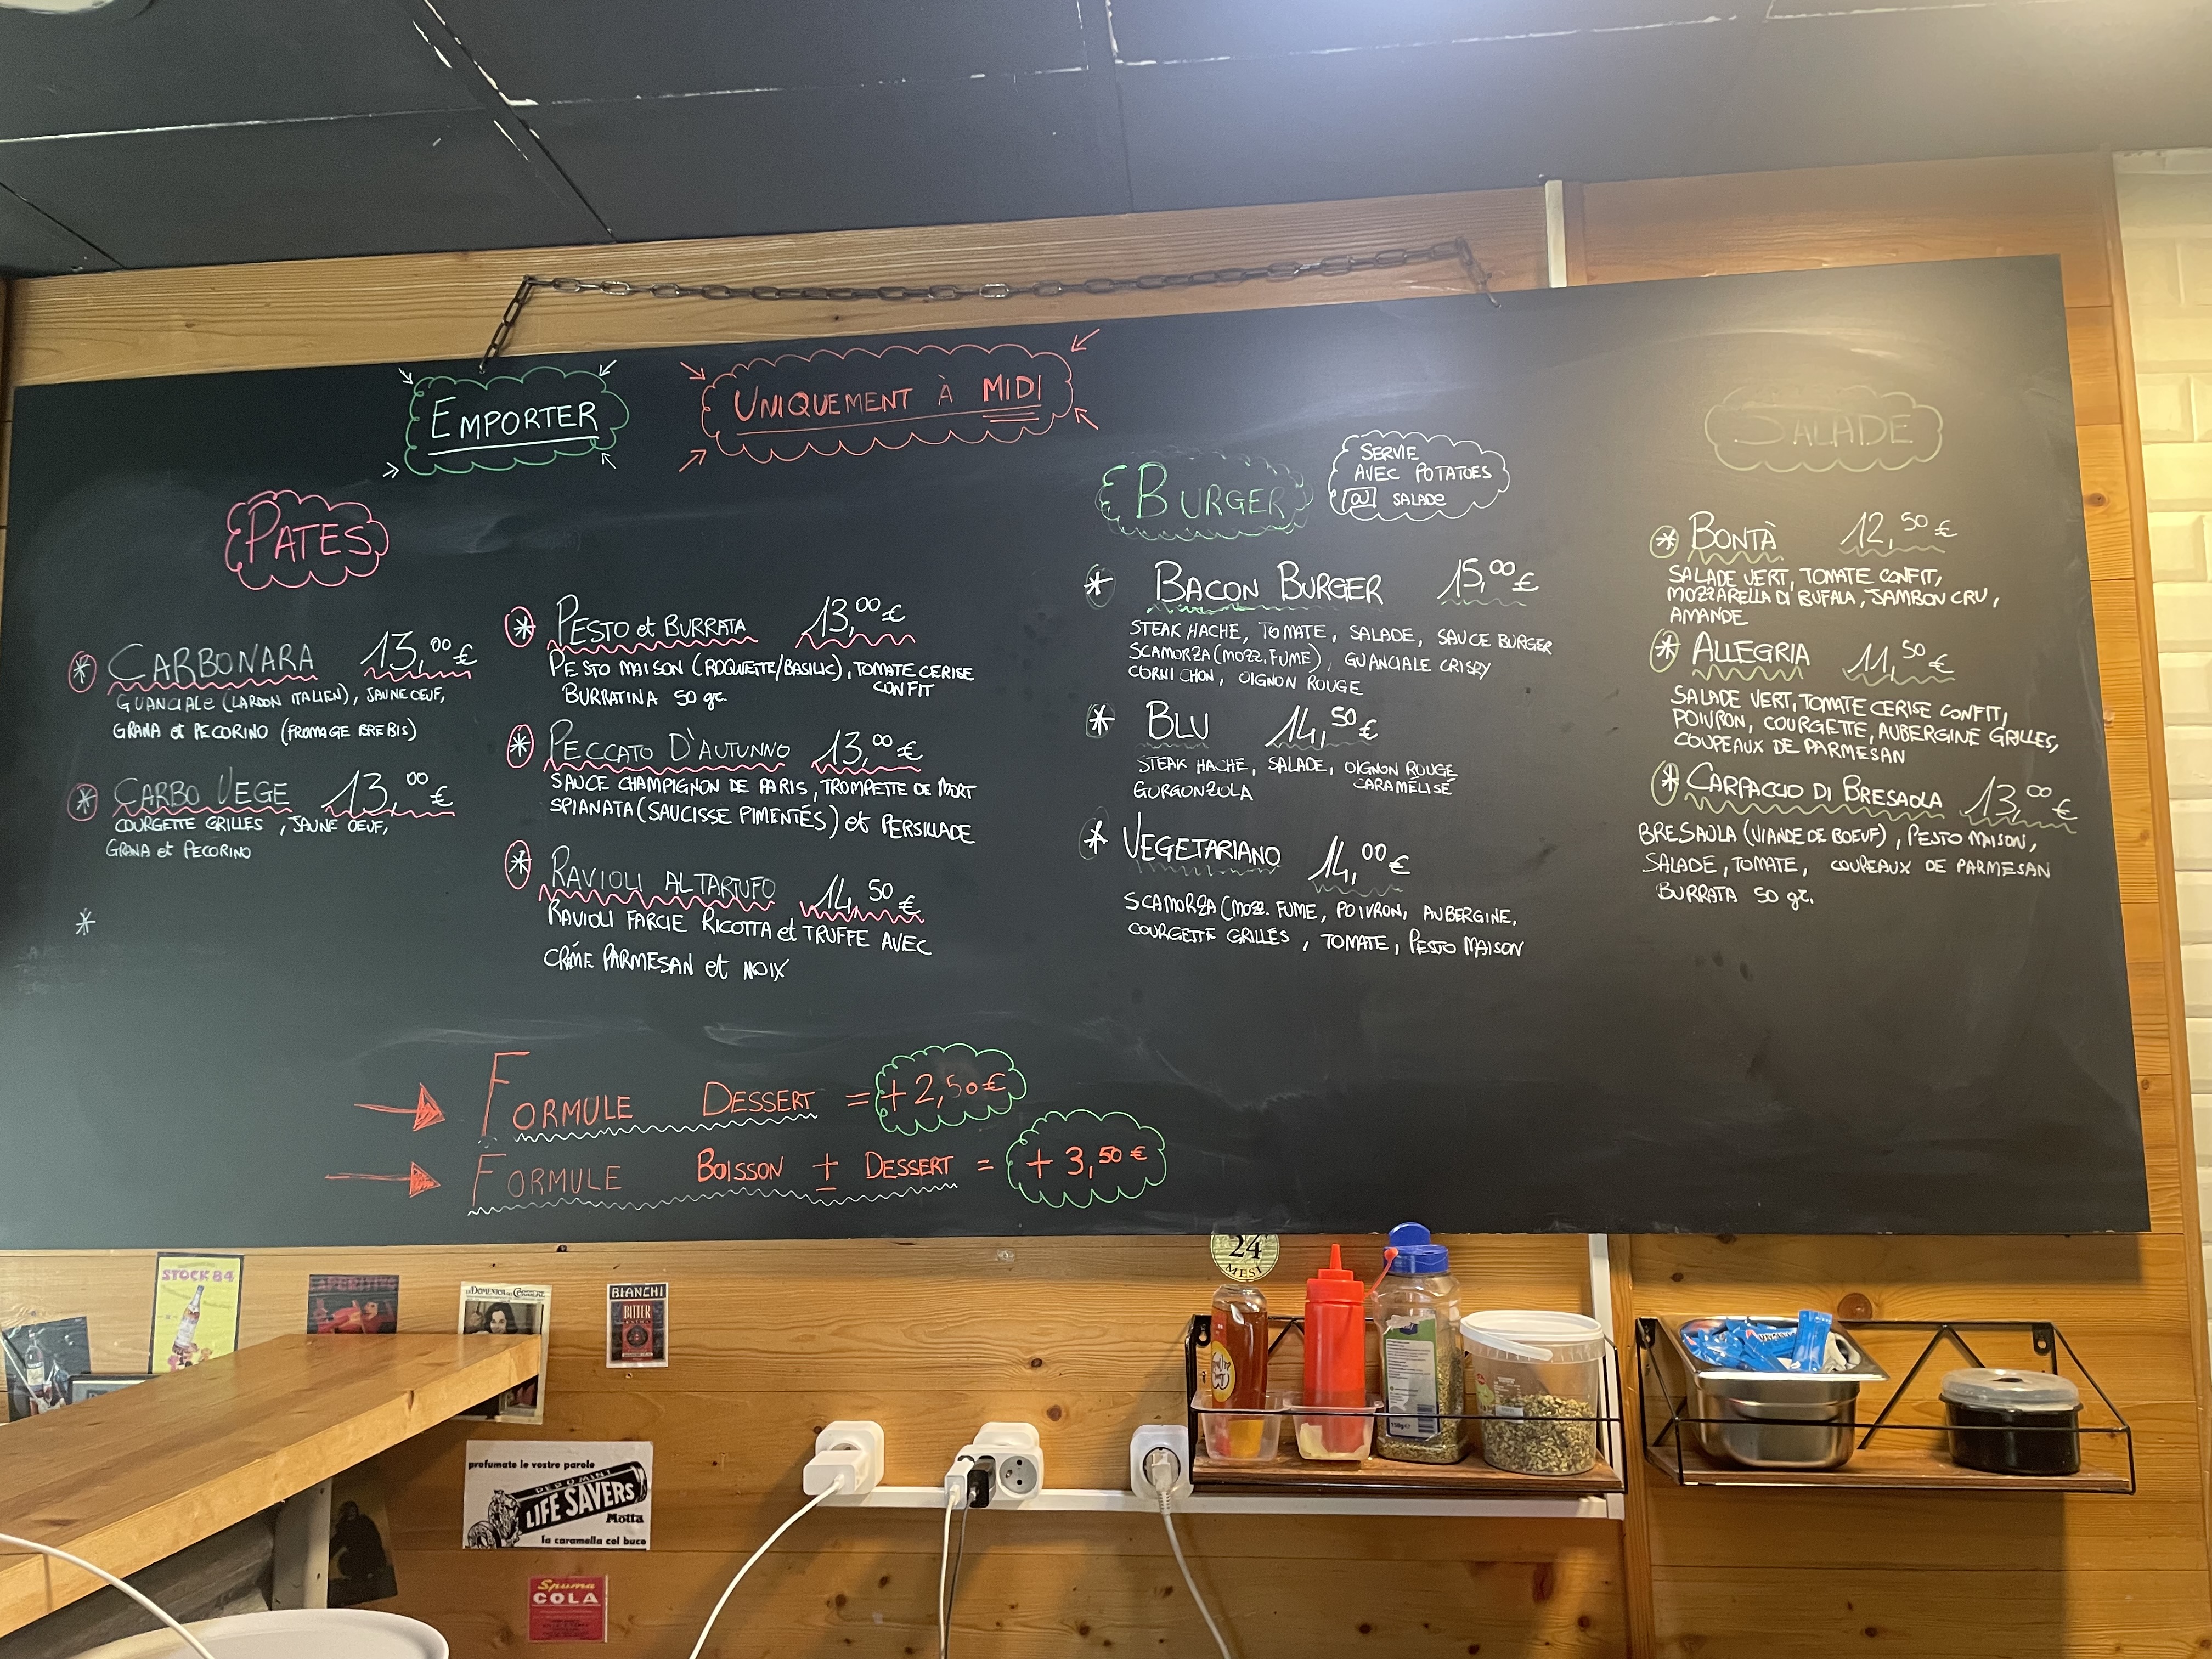 EMPORTER
UNIQUEMENT À MIDI
PATES
* CARBONARA 13,00 €
GUANCIALE (LARDON ITALIEN), JAUNE OEUF,
GRANA et PECORINO (FROMAGE BREBIS)
* CARBO VEGE 13,00 €
COURGETTE GRILLES, JAUNE OEUF,
GRANA et PECORINO
*
* PESTO et BURRATA 13,00 €
PESTO MAISON (ROQUETTE/BASILIC), TOMATE CERISE
CONFIT
BURRATINA 50 gr.
* PECCATO D'AUTUNNO 13,00 €
SAUCE CHAMPIGNON DE PARIS, TROMPETTE DE MORT
SPIANATA (SAUCISSE PIMENTÉS) et PERSILLADE
* RAVIOLI AL TARTUFO 14,50 €
RAVIOLI FARCIE RICOTTA et TRUFFE AVEC
CRÈME PARMESAN et NOIX
BURGER
SERVIE
AVEC POTATOES
OU SALADE
* BACON BURGER 15,00 €
STEAK HACHE, TOMATE, SALADE, SAUCE BURGER
SCAMORZA (MOZZ. FUME), GUANCIALE CRISPY
CORNICHON, OIGNON ROUGE
* BLU 14,50 €
STEAK HACHE, SALADE, OIGNON ROUGE
CARAMÉLISÉ
GORGONZOLA
* VEGETARIANO 14,00 €
SCAMORZA (MOZZ. FUME, POIVRON, AUBERGINE,
COURGETTE GRILLÉS, TOMATE, PESTO MAISON
SALADE
* BONTÀ 12,50 €
SALADE VERT, TOMATE CONFIT,
MOZZARELLA DI BUFALA, JAMBON CRU,
AMANDE
* ALLEGRIA 11,50 €
SALADE VERT, TOMATE CERISE CONFIT,
POIVRON, COURGETTE, AUBERGINE GRILLES,
COUPEAUX DE PARMESAN
* CARPACCIO DI BRESAOLA 13,00 €
BRESAOLA (VIANDE DE BOEUF), PESTO MAISON,
SALADE, TOMATE, COUPEAUX DE PARMESAN
BURRATA 50 gr.
FORMULE DESSERT = +2,50 €
FORMULE BOISSON + DESSERT = + 3,50 €
24
MESI
STOCK 84
APERITIVO
BIANCHI
BITTER
profumate le vostre parole
PEPOMINT
LIFE SAVERS
Motta
la caramella col buco
Spuma
COLA